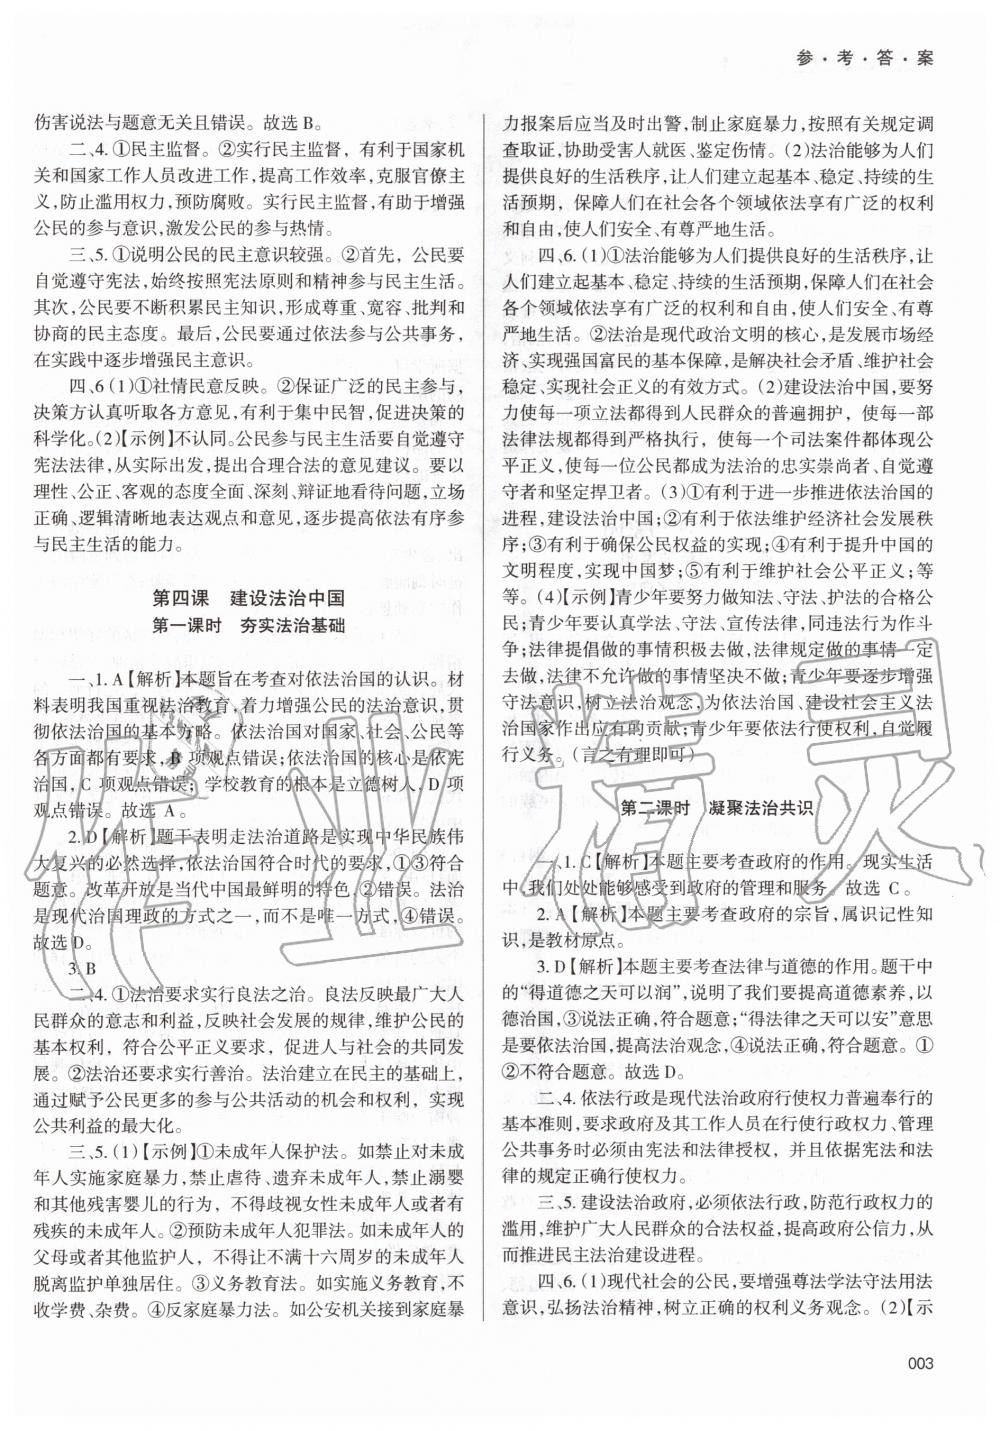 参·考·答·案
伤害说法与题意无关且错误。故选 B。
二、4. ①民主监督。②实行民主监督，有利于国家机
关和国家工作人员改进工作，提高工作效率，克服官僚主
义，防止滥用权力，预防腐败。实行民主监督，有助于增强
公民的参与意识，激发公民的参与热情。
三、5. ①说明公民的民主意识较强。②首先，公民要
自觉遵守宪法，始终按照宪法原则和精神参与民主生活。
其次，公民要不断积累民主知识，形成尊重、宽容、批判和
协商的民主态度。最后，公民要通过依法参与公共事务，
在实践中逐步增强民主意识。
四、6 (1)①社情民意反映。②保证广泛的民主参与，
决策方认真听取各方意见，有利于集中民智，促进决策的
科学化。(2)【示例】不认同。公民参与民主生活要自觉遵守
宪法法律，从实际出发，提出合理合法的意见建议。要以
理性、公正、客观的态度全面、深刻、辩证地看待问题，立场
正确、逻辑清晰地表达观点和意见，逐步提高依法有序参
与民主生活的能力。
第四课 建设法治中国
第一课时 夯实法治基础
一、1. A【解析】本题旨在考查对依法治国的认识。材
料表明我国重视法治教育，着力增强公民的法治意识，贯
彻依法治国的基本方略。依法治国对国家、社会、公民等
各方面都有要求，B 项观点错误；依法治国的核心是依宪
治国，C 项观点错误；学校教育的根本是立德树人，D 项
观点错误。故选 A。
2. D【解析】题干表明走法治道路是实现中华民族伟
大复兴的必然选择，依法治国符合时代的要求，①③符合
题意。改革开放是当代中国最鲜明的特色，②错误。法治
是现代治国理政的方式之一，而不是唯一方式，④错误。
故选 D。
3. B
二、4. ①法治要求实行良法之治。良法反映最广大人
民群众的意志和利益，反映社会发展的规律，维护公民的
基本权利，符合公平正义要求，促进人与社会的共同发
展。②法治还要求实行善治。法治建立在民主的基础上，
通过赋予公民更多的参与公共活动的机会和权利，实现
公共利益的最大化。
三、5. (1)【示例】①未成年人保护法。如禁止对未成
年人实施家庭暴力，禁止虐待、遗弃未成年人，禁止溺婴
和其他残害婴儿的行为，不得歧视女性未成年人或者有
残疾的未成年人。②预防未成年人犯罪法。如未成年人的
父母或者其他监护人，不得让不满十六周岁的未成年人
脱离监护单独居住。③义务教育法。如实施义务教育，不
收学费、杂费。④反家庭暴力法。如公安机关接到家庭暴
力报案后应当及时出警，制止家庭暴力，按照有关规定调
查取证，协助受害人就医、鉴定伤情。(2)法治能够为人们
提供良好的生活秩序，让人们建立起基本、稳定、持续的生
活预期，保障人们在社会各个领域依法享有广泛的权利
和自由，使人们安全、有尊严地生活。
四、6. (1)①法治能够为人们提供良好的生活秩序，让
人们建立起基本、稳定、持续的生活预期，保障人们在社会
各个领域依法享有广泛的权利和自由，使人们安全、有尊
严地生活。②法治是现代政治文明的核心，是发展市场经
济、实现强国富民的基本保障，是解决社会矛盾、维护社会
稳定、实现社会正义的有效方式。(2)建设法治中国，要努
力使每一项立法都得到人民群众的普遍拥护，使每一部
法律法规都得到严格执行，使每一个司法案件都体现公
平正义，使每一位公民都成为法治的忠实崇尚者、自觉遵
守者和坚定捍卫者。(3)①有利于进一步推进依法治国的
进程，建设法治中国；②有利于依法维护经济社会发展秩
序；③有利于确保公民权益的实现；④有利于提升中国的
文明程度，实现中国梦；⑤有利于维护社会公平正义；等
等。(4)【示例】青少年要努力做知法、守法、护法的合格公
民；青少年要认真学法、守法、宣传法律，同违法行为作斗
争；法律提倡做的事情积极去做，法律规定必做的事情一定
去做，法律不允许做的事情坚决不做；青少年要逐步增强
守法意识，树立法治观念，为依法治国、建设社会主义法
治国家作出应有的贡献；青少年要依法行使权利，自觉履
行义务。(言之有理即可)
第二课时 凝聚法治共识
一、1. C【解析】本题主要考查政府的作用。现实生活
中，我们处处能够感受到政府的管理和服务。故选 C。
2. A【解析】本题主要考查政府的宗旨，属识记性知
识，是教材原点。
3. D【解析】本题主要考查法律与道德的作用。题干中
的“得道德之天可以润”，说明了我们要提高道德素养，以
德治国，③说法正确，符合题意；“得法律之天可以安”意思
是要依法治国，提高法治观念，④说法正确，符合题意。①
②不符合题意。故选 D。
二、4. 依法行政是现代法治政府行使权力普遍奉行的
基本准则，要求政府及其工作人员在行使行政权力、管理
公共事务时必须由宪法和法律授权，并且依据宪法和法
律的规定正确行使权力。
三、5. 建设法治政府，必须依法行政，防范行政权力的
滥用，维护广大人民群众的合法权益，提高政府公信力，从
而推进民主法治建设进程。
四、6. (1)现代社会的公民，要增强尊法学法守法用法
意识，弘扬法治精神，树立正确的权利义务观念。(2)【示
003
作业精灵